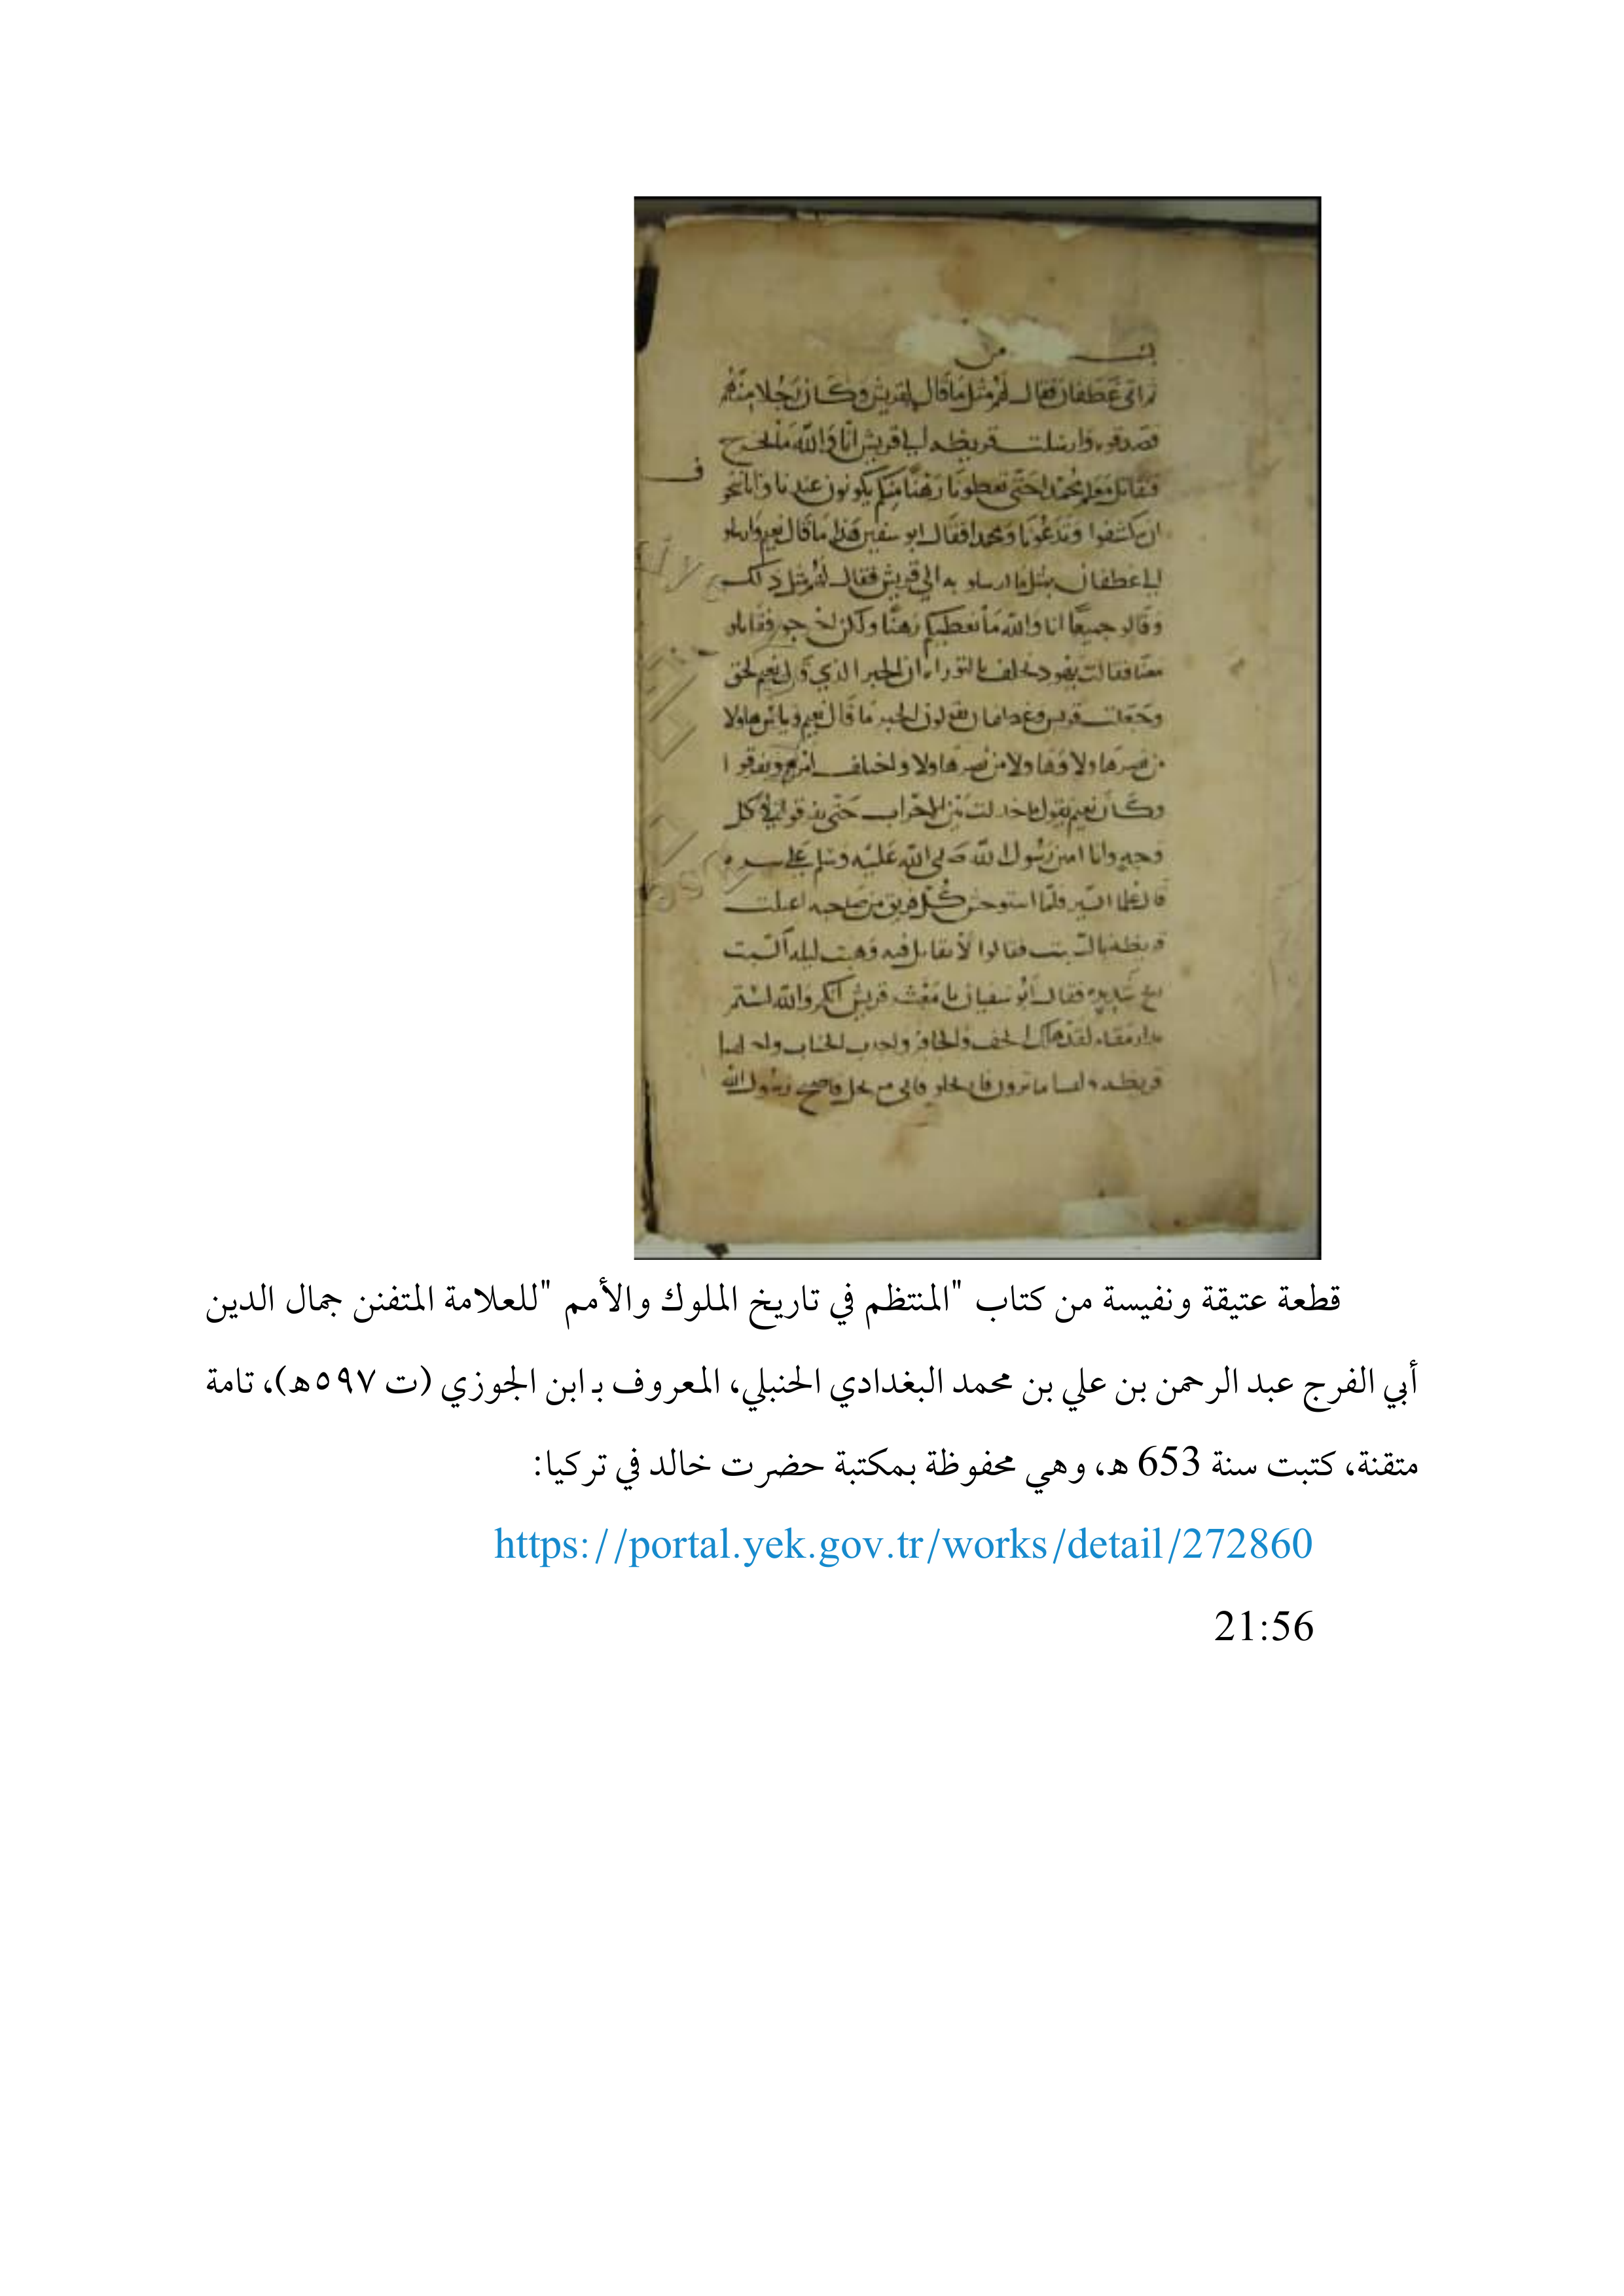 ثم اتى غطفان فقال لهم مثل ما قال لقريش وكان رجلا منهم
فصدقوه وارسلت قريظه الى قريش انا والله ما نخرج
فنقاتل معكم محمدا حتى تعطونا رهنا منكم يكونون عندنا فانا نتخو
ان تنكشفوا وتدعونا ومحمدا فقال ابو سفين هذا ما قال نعيم وارسلو
الى غطفان بمثل ما ارسلو به الى قريش فقال لهم مثل ذلك
وقالو جميعا انا والله ما نعطيكم رهنا ولكن اخرجو فقاتلو
معنا فقالت يهود نحلف بالتوراه ان الخبر الذي قال نعيم لحق
وجعلت قريش وغطفان يقولون الخبر ما قال نعيم ويائس هاولا
من نصر هاولا وهاولا من نصر هاولا واختلف امرهم وتفرقوا
وكان نعيم يقول انا خذلت بين الاحزاب حتى تفرقوا في كل
وجه وانا امين رسول الله صلى الله عليه وسلم على سره
قال علما السير فلما استوحش كل فريق من صاحبه اعتلت
قريظه بالسبت فقالوا لا نقاتل فيه وهبت ليله السبت
ريح شديده فقال ابو سفيان يا معشر قريش انكم والله لستم
بدار مقام لقد هلك الخف والحافر واجدب الجناب واخلفتنا
قريظه ولقينا ما ترون فارتحلو فاني مرتحل فاصبح رسول الله
قطعة عتيقة ونفيسة من كتاب "المنتظم في تاريخ الملوك والأمم "للعلامة المتفنن جمال الدين
أبي الفرج عبد الرحمن بن علي بن محمد البغدادي الحنبلي، المعروف بـ ابن الجوزي (ت ٥٩٧ه)، تامة
متقنة، كتبت سنة 653 ه، وهي محفوظة بمكتبة حضرت خالد في تركيا:
https://portal.yek.gov.tr/works/detail/272860
21:56